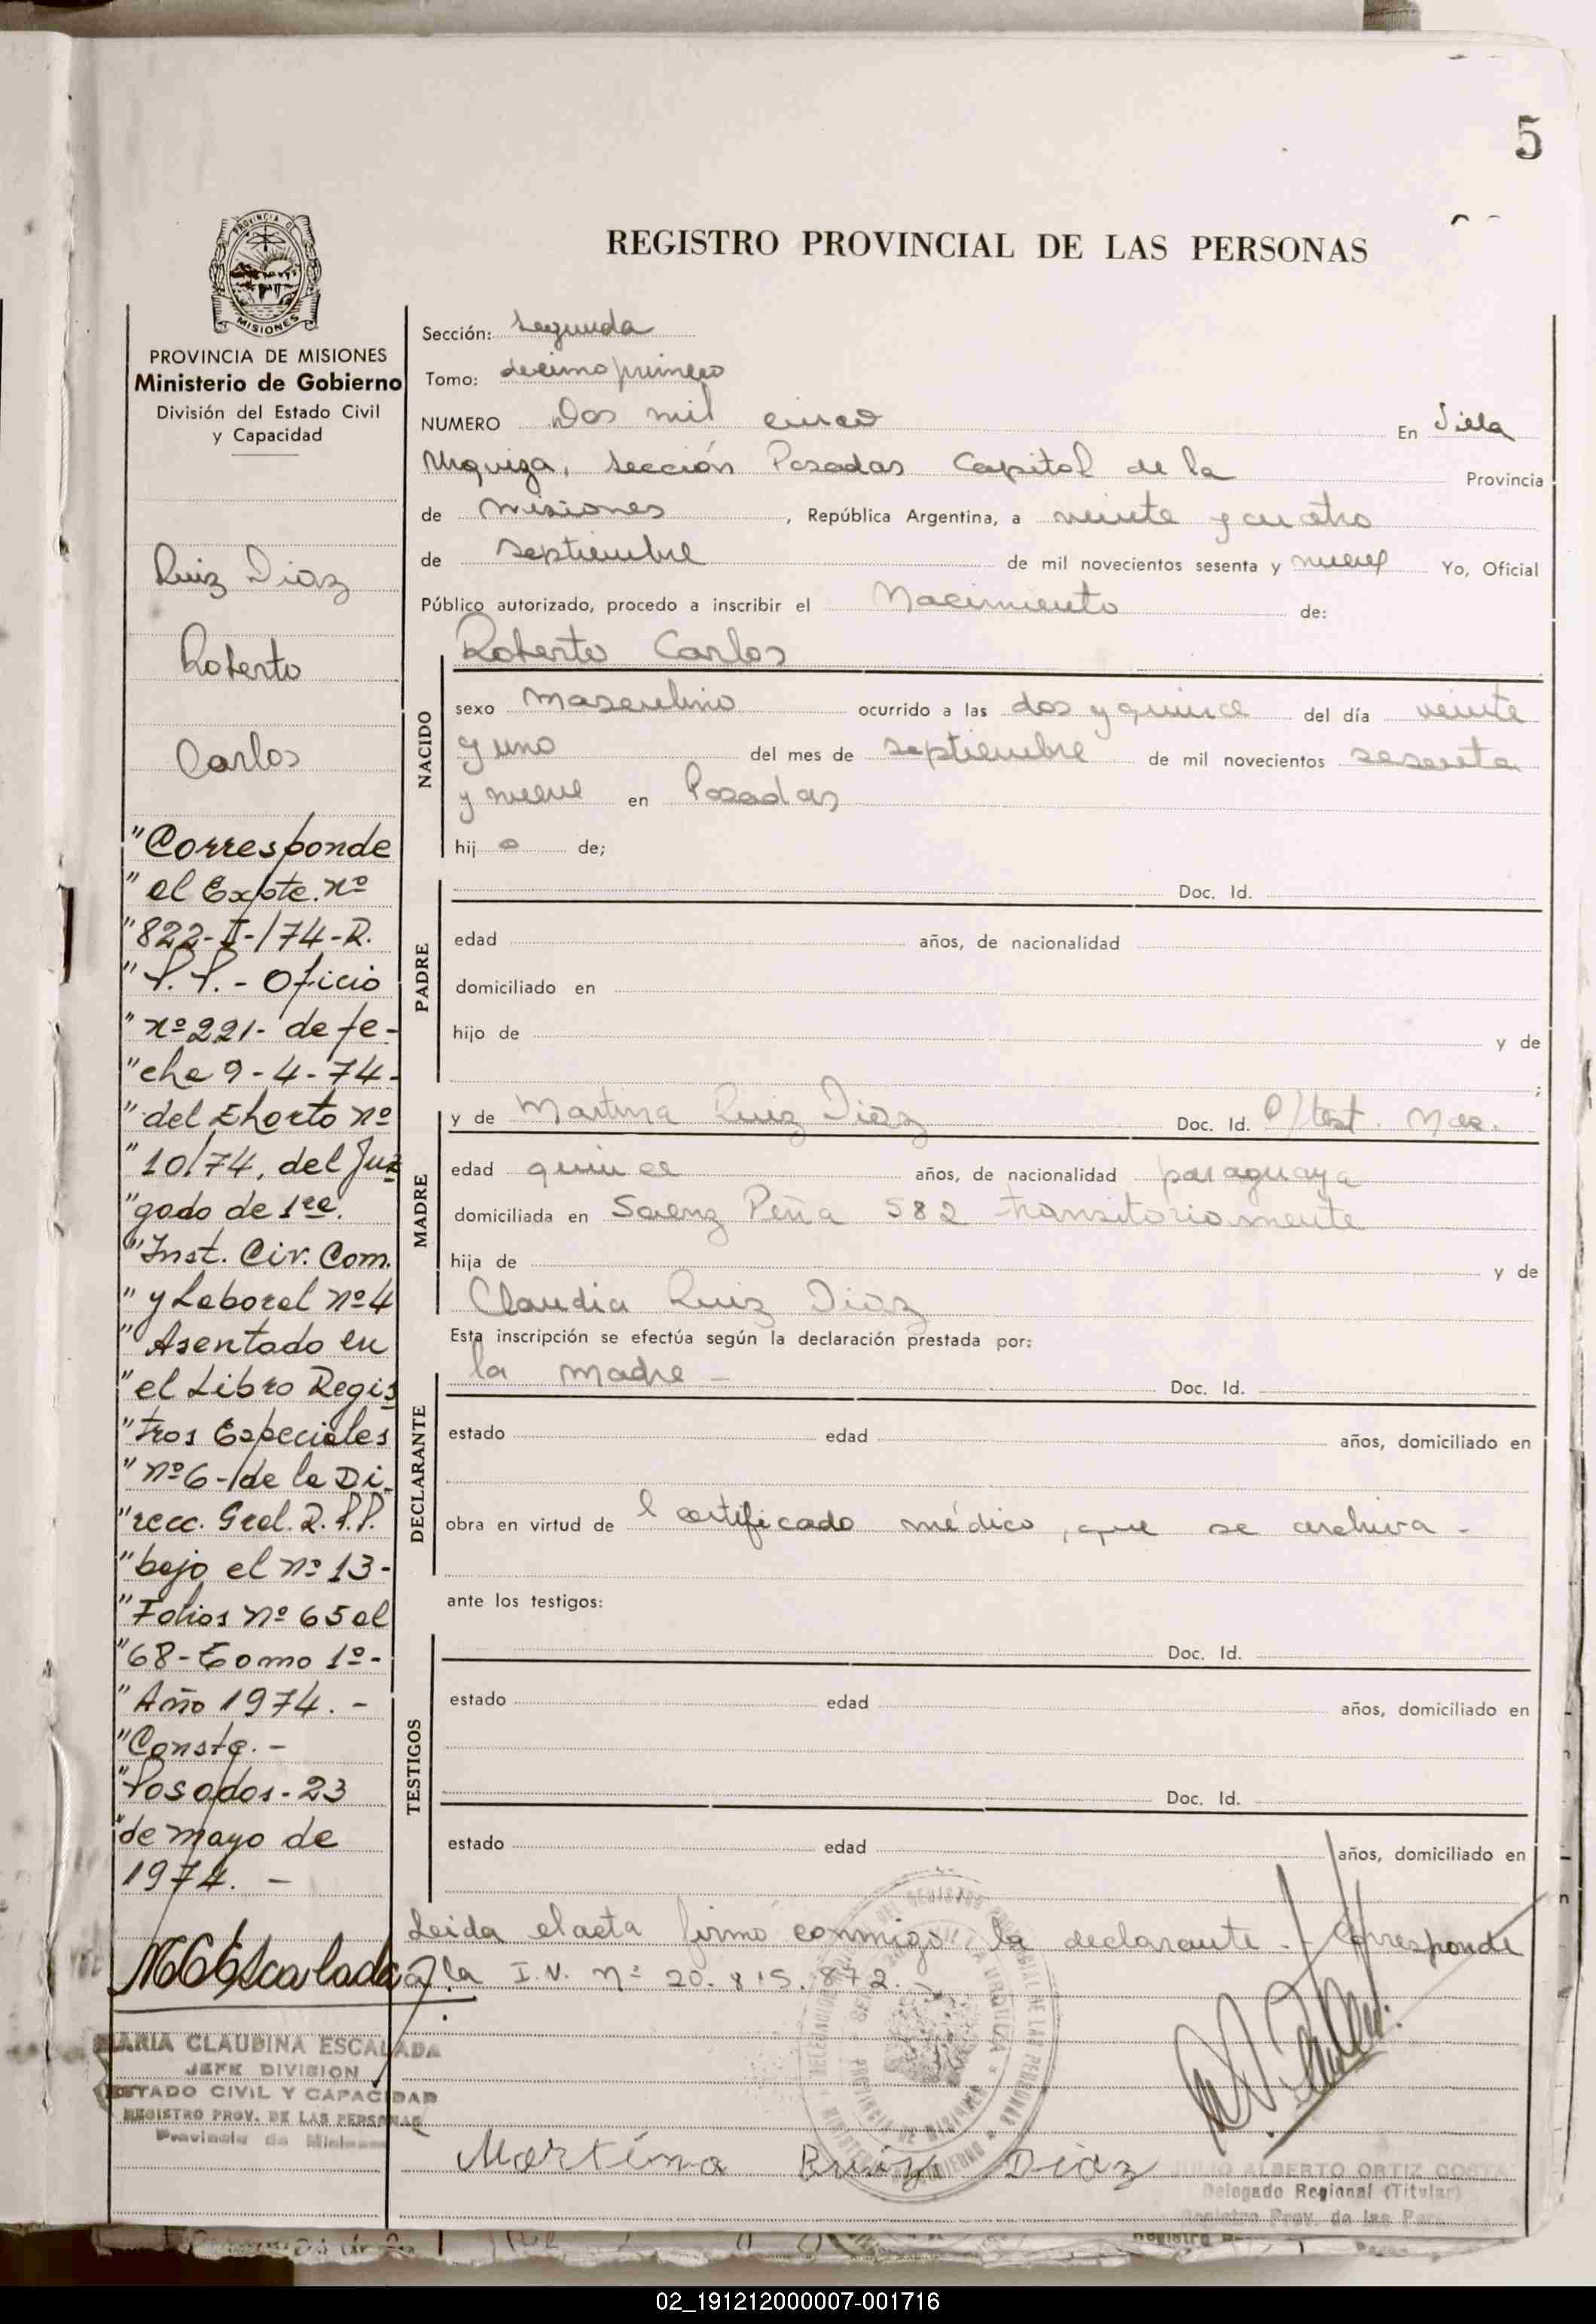 5
REGISTRO PROVINCIAL DE LAS PERSONAS
PROVINCIA
MISIONES
PROVINCIA DE MISIONES
Ministerio de Gobierno
División del Estado Civil
y Capacidad
Ruiz Diaz
Roberto
Carlos
"Corresponde
" al Expte. nº
"822-I-/74-R.
" P.P. - Oficio
" nº 221- de fe-
"cha 9-4-74-
" del Exhorto nº
" 10/74, del Juz
"gado de 1ra.
"Inst. Civ. Com.
" y Laboral nº 4
" Asentado en
"el Libro Regis
"tros Especiales
" nº 6-/de la Di
"recc. Gral. R.P.P.
"bajo el nº 13-
"Folios nº 65 al
"68-Tomo 1º-
"Año 1974. -
"Conste. -
"Posadas-23
"de mayo de
1974. -
MARIA CLAUDINA ESCALADA
JEFE DIVISION
ESTADO CIVIL Y CAPACIDAD
REGISTRO PROV. DE LAS PERSONAS
Provincia de Misiones
Sección: Segunda
Tomo: decimo primero
NUMERO Dos mil cinco En Villa
Urquiza, Sección Posadas Capital de la Provincia
de Misiones , República Argentina, a veinte y cuatro
de Septiembre de mil novecientos sesenta y nueve Yo, Oficial
Público autorizado, procedo a inscribir el Nacimiento de:
Roberto Carlos
NACIDO
sexo Masculino ocurrido a las dos y quince del día veinte
y uno del mes de septiembre de mil novecientos sesenta
y nueve en Posadas
hij o de;
PADRE
Doc. Id.
edad años, de nacionalidad
domiciliado en
hijo de y de
;
MADRE
y de Martina Ruiz Diaz Doc. Id. C/test. Nac.
edad quince años, de nacionalidad paraguaya
domiciliada en Saenz Peña 582 transitoriamente
hija de y de
Claudia Ruiz Diaz
Esta inscripción se efectúa según la declaración prestada por:
DECLARANTE
la madre - Doc. Id.
estado edad años, domiciliado en
obra en virtud de l certificado médico, que se archiva -
ante los testigos:
TESTIGOS
Doc. Id.
estado edad años, domiciliado en
Doc. Id.
estado edad años, domiciliado en
Leida el acta firmó conmigo la declarante. - Corresponde
a la I.V. Nº 20.815.872. -
Martína Ruiz Diaz
JULIO ALBERTO ORTIZ COSTA
Delegado Regional (Titular)
Registro Prov. de las Pers.
02_191212000007-001716